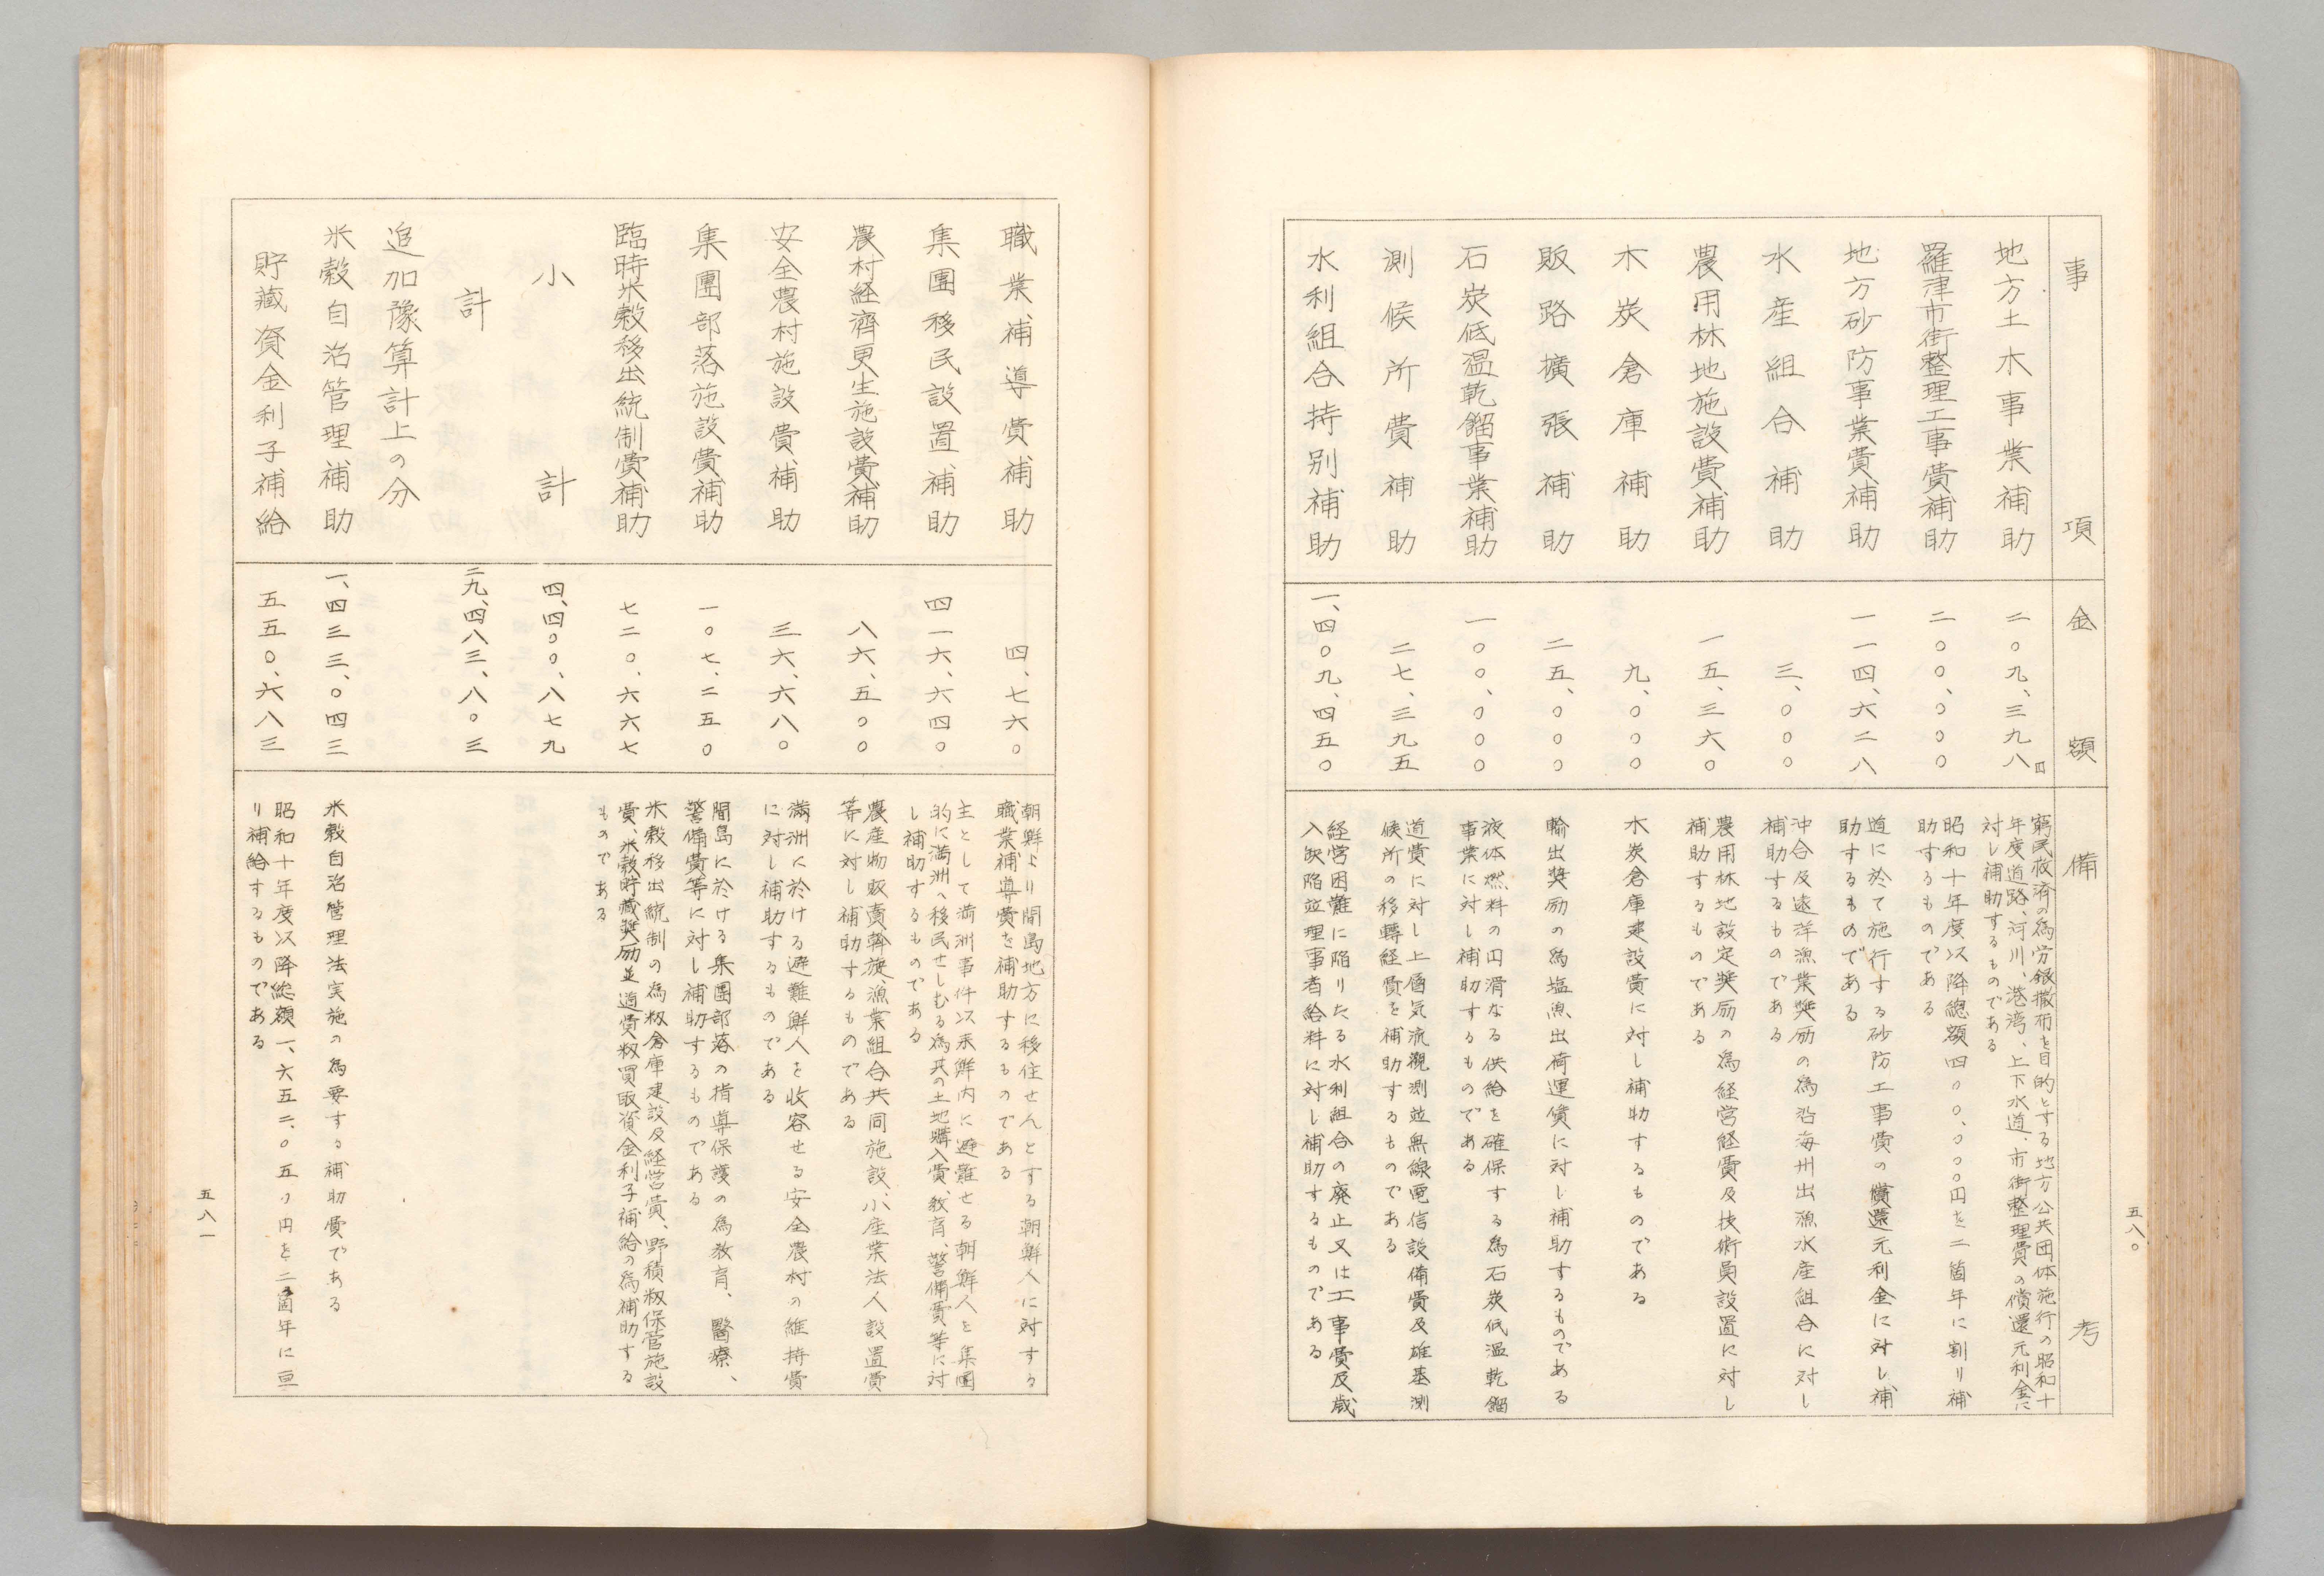 五八〇
事項
金額
備考
地方土木事業補助
二〇九、三九八円
窮民救済の為労銀撒布を目的とする地方公共団体施行の昭和十
年度道路、河川、港湾、上下水道、市街整理費の償還元利金に
対し補助するものである
羅津市街整理工事費補助
二〇〇、〇〇〇
昭和十年度以降總額四〇〇、〇〇〇円を二箇年に割り補
助するものである
地方砂防事業費補助
一一四、六二八
道に於て施行する砂防工事費の償還元利金に対し補
助するものである
水産組合補助
三、〇〇〇
沖合及遠洋漁業奬励の為沿海州出漁水産組合に対し
補助するものである
農用林地施設費補助
一五、三六〇
農用林地設定奬励の為経営経費及技術員設置に対し
補助するものである
木炭倉庫補助
九、〇〇〇
木炭倉庫建設費に対し補助するものである
販路擴張補助
二五、〇〇〇
輸出奬励の為塩魚出荷運賃に対し補助するものである
石炭低温乾餾事業補助
一〇〇、〇〇〇
液体燃料の円滑なる供給を確保する為石炭低温乾餾
事業に対し補助するものである
測候所費補助
二七、三九五
道費に対し上層気流観測並無線電信設備費及雄基測
候所の移轉経費を補助するものである
水利組合特別補助
一、四〇九、四五〇
経営困難に陥りたる水利組合の廃止又は工事費及歳
入缺陥並理事者給料に対し補助するものである
職業補導費補助
四、七六〇
朝鮮より間島地方に移住せんとする朝鮮人に対する
職業補導費を補助するものである
集團移民設置補助
四一六、六四〇
主として満洲事件以来鮮内に避難せる朝鮮人を集團
的に満洲へ移民せしむる為其の土地購入費、教育、警備費等に対
し補助するものである
農村経濟更生施設費補助
八六、五〇〇
農産物販賣斡旋、漁業組合共同施設、小産業法人設置費
等に対し補助するものである
安全農村施設費補助
三六、六八〇
滿洲に於ける避難鮮人を收容せる安全農村の維持費
に対し補助するものである
集團部落施設費補助
一〇七、二五〇
間島に於ける集團部落の指導保護の為教育、醫療、
警備費等に対し補助するものである
臨時米穀移出統制費補助
七二〇、六六七
米穀移出統制の為籾倉庫建設及経営費、野積籾保管施設
費、米穀貯藏奬励並道費籾買取資金利子補給の為補助する
ものである
小計
四、四〇〇、八七九
計
二九、四八三、八〇三
追加豫算計上の分
米穀自治管理補助
一、四三三、〇四三
米穀自治管理法実施の為要する補助費である
貯藏資金利子補給
五五〇、六八三
昭和十年度以降総額一、六五二、〇五〇円を二箇年に亘
り補給するものである
五八一